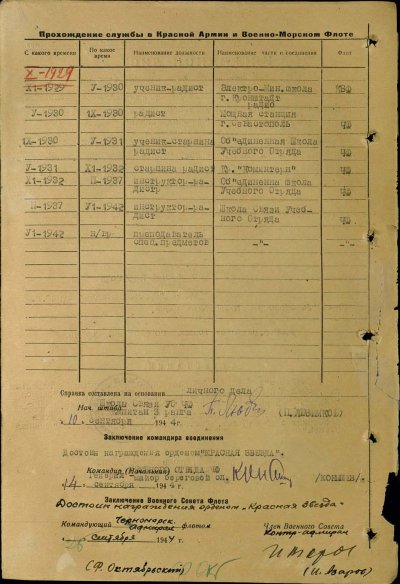 Прохождение службы в Красной Армии и Военно-Морском Флоте
С какого времени По какое время Наименование должности Наименование части и соединения Флот
X-1929
XI-1929 У-1930 ученик-радист Электро-Мин.школа г.Кронштадт КБФ
У-1930 IX-1930 радист радио Мощная станция г.Севастополь ЧФ
IX-1930 У-1931 ученик-старшина радист Об"единенная Школа Учебного Отряда ЧФ
У-1931 XI-1932 старшина радист Кр."Коминтерн" ЧФ
XI-1932 П-1937 инструктор-радистр Об"единенна Школа Учебного Отряда ЧФ
П-1937 У1-1942 инструктор-радист Школа Связи Учебного Отряда ЧФ
У1-1942 н/вр преподаватель спец.предметов -"- -"-
Справка составлена на основании личного дела
Нач. штаба Школы Связи УО ЧФ
капитан 3 ранга
10 сентября 1944 г.
Заключение командира соединения
Достоин награждения орденом "КРАСНАЯ ЗВЕЗДА".
Командир (Начальник) ОТРЯДА ЧФ
Генерал майор береговой сл.
14 сентября 1944 г.
Заключение Военного Совета Флота
Достоин награждения орденом „Красная Звезда"
Командующий Черноморск. флотом
Адмирал
Член Военного Совета
контр-адмирал
сентября 1944 г.
(Ф. Октябрьский)
(И. Азаров)